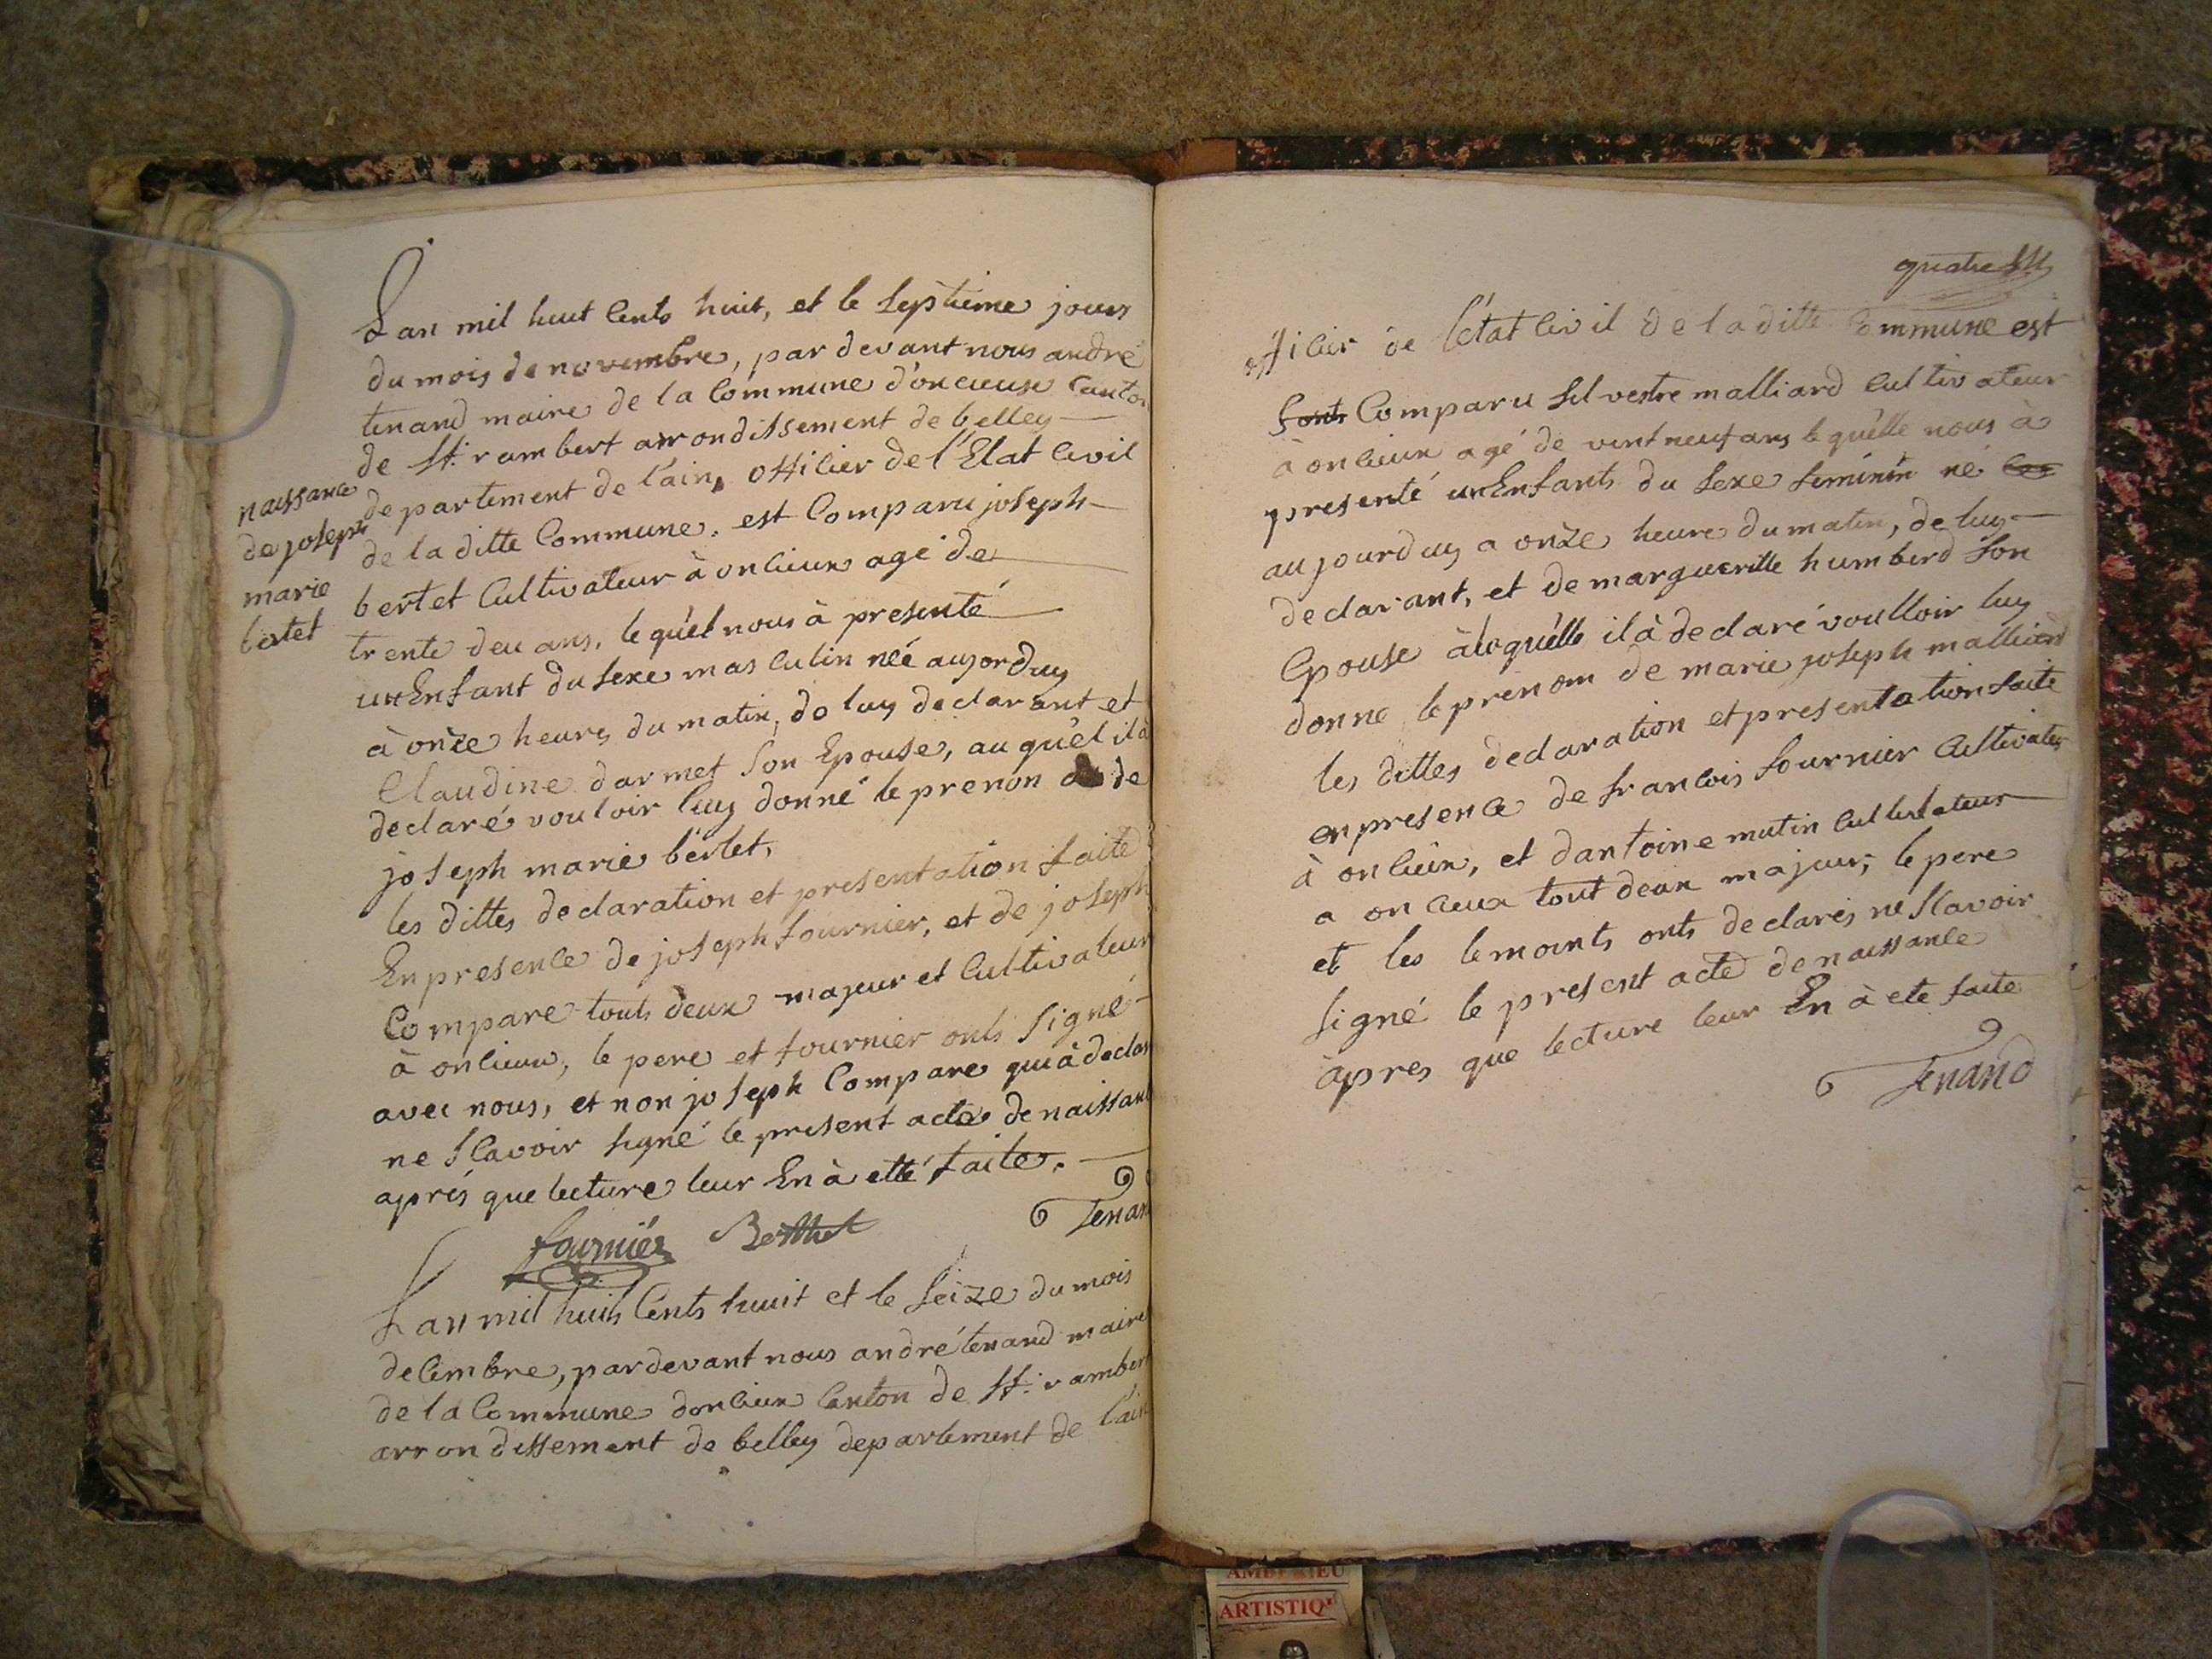 Lan mil huit Cents huit, et le Septieme jours
du mois de novembre, par devant nous andré
tenand maire de la Commune d'oncieux Canton
de St. rambert arrondissement de belley
departement de l'ain, officier de l'Etat Civil
de la ditte Commune. est Comparu joseph
bertet Cultivateur à oncieux agé de
trente deu ans, le quel nous à presenté
un Enfant du sexe masculin née aujorduy
à onze heures du matin, de luy declarant et
Claudine darmet son Epouse, au quel il à
declaré vouloir luy donné le prenon de
joseph marie bertet,
les dittes declaration et presentation faite
En presence de joseph fournier, et de joseph
Compare touts deux majeur et Cultivateur
à oncieux, le pere et fournier onts signé
avec nous, et non joseph Compare qui à declar
ne sCavoir signé le present acte de naissanc
aprés que lecture leur En à etté faite.
fournier Berthet Tenan
naissance
de joseph
marie
bertet
Lan mil huit Cents huit et le Seize du mois
decembre, par devant nous andré tenand maire
de la Commune doncieux Canton de St. rambert
arrondissement de belley departement de l'ain
quatre
officier de l'état Civil de la ditte Commune est
Sonts Comparu silvestre malliard Cultivateur
à oncieux agé de vint neuf ans le quelle nous à
presenté un Enfants du sexe feminin né
aujourduy a onze heure du matin, de luy
declarant, et de margueritte humberd son
Epouse à laquelle il à declaré voulloir luy
donne le prenom de marie joseph malliard
les dittes declaration et presentation faite
en presence de francois fournier Cultivateur
à oncieux, et dantoine mutin Cultivateur
a oncieux tout deux majeur, le pere
et les temoints onts declarés ne sCavoir
signé le present acte de naissance
àpres que lecture leur En à ete faite
Tenand
AMBERIEU
ARTISTIQ